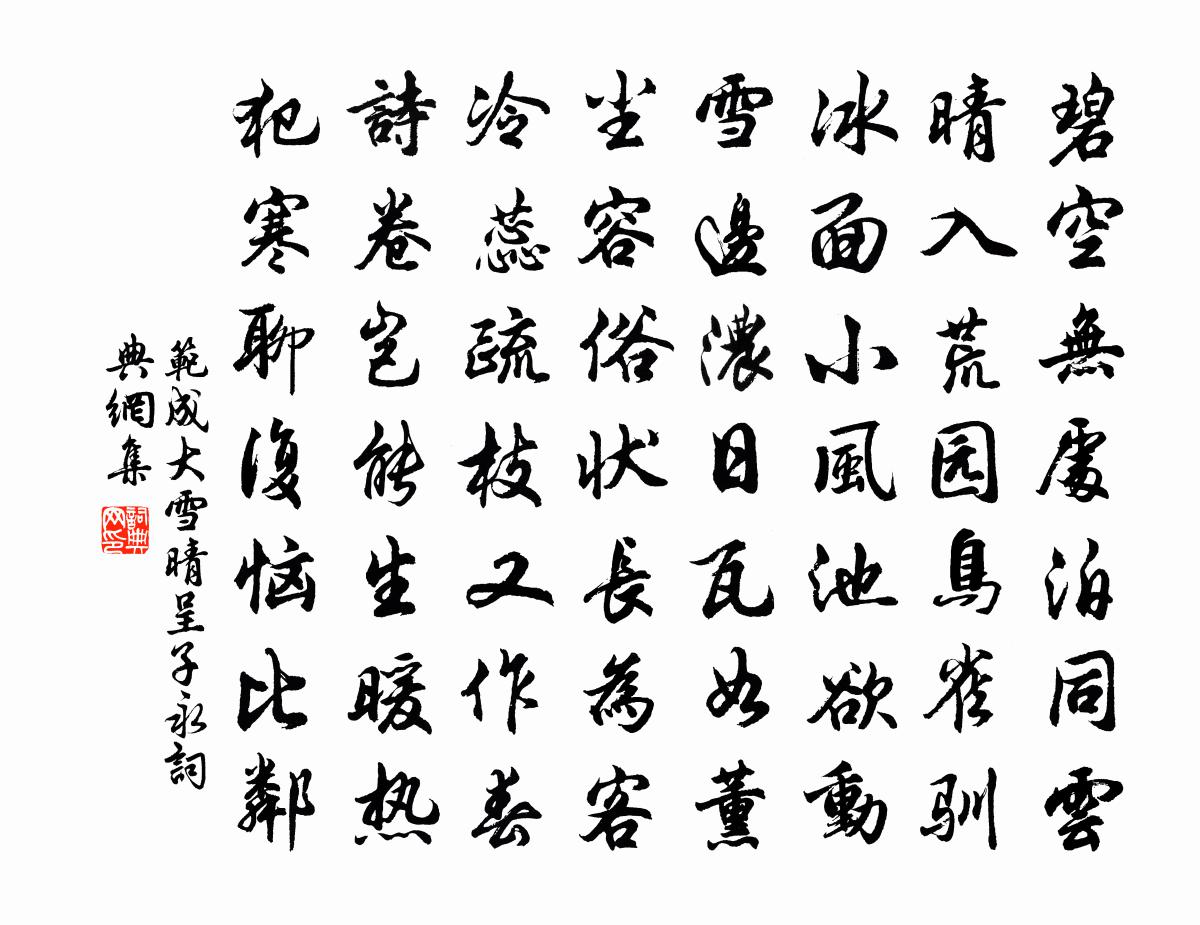 碧空無處泊同雲
晴入荒园鳥雀馴
冰面小風池欲動
雪邊濃日瓦如薰
尘容俗状長為客
冷蕊疏枝又作春
詩卷岂能生暖热
犯寒聊復恼比鄰
範成大雪晴呈子永詞
典網集
詞典
网印